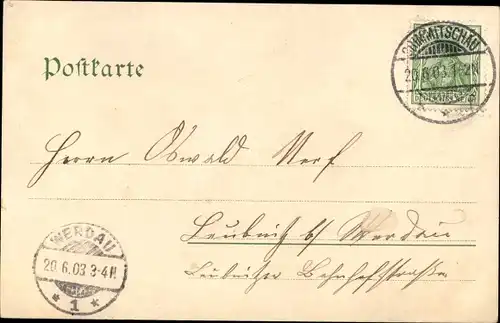 Postkarte
CRIMMITSCHAU
20.6.03.1-2N
Herrn Oswald Kerf
Leubnitz b/ Werdau
Leubnitzer Bahnhofstraße
WERDAU
20.6.03 3-4N
* 1 *